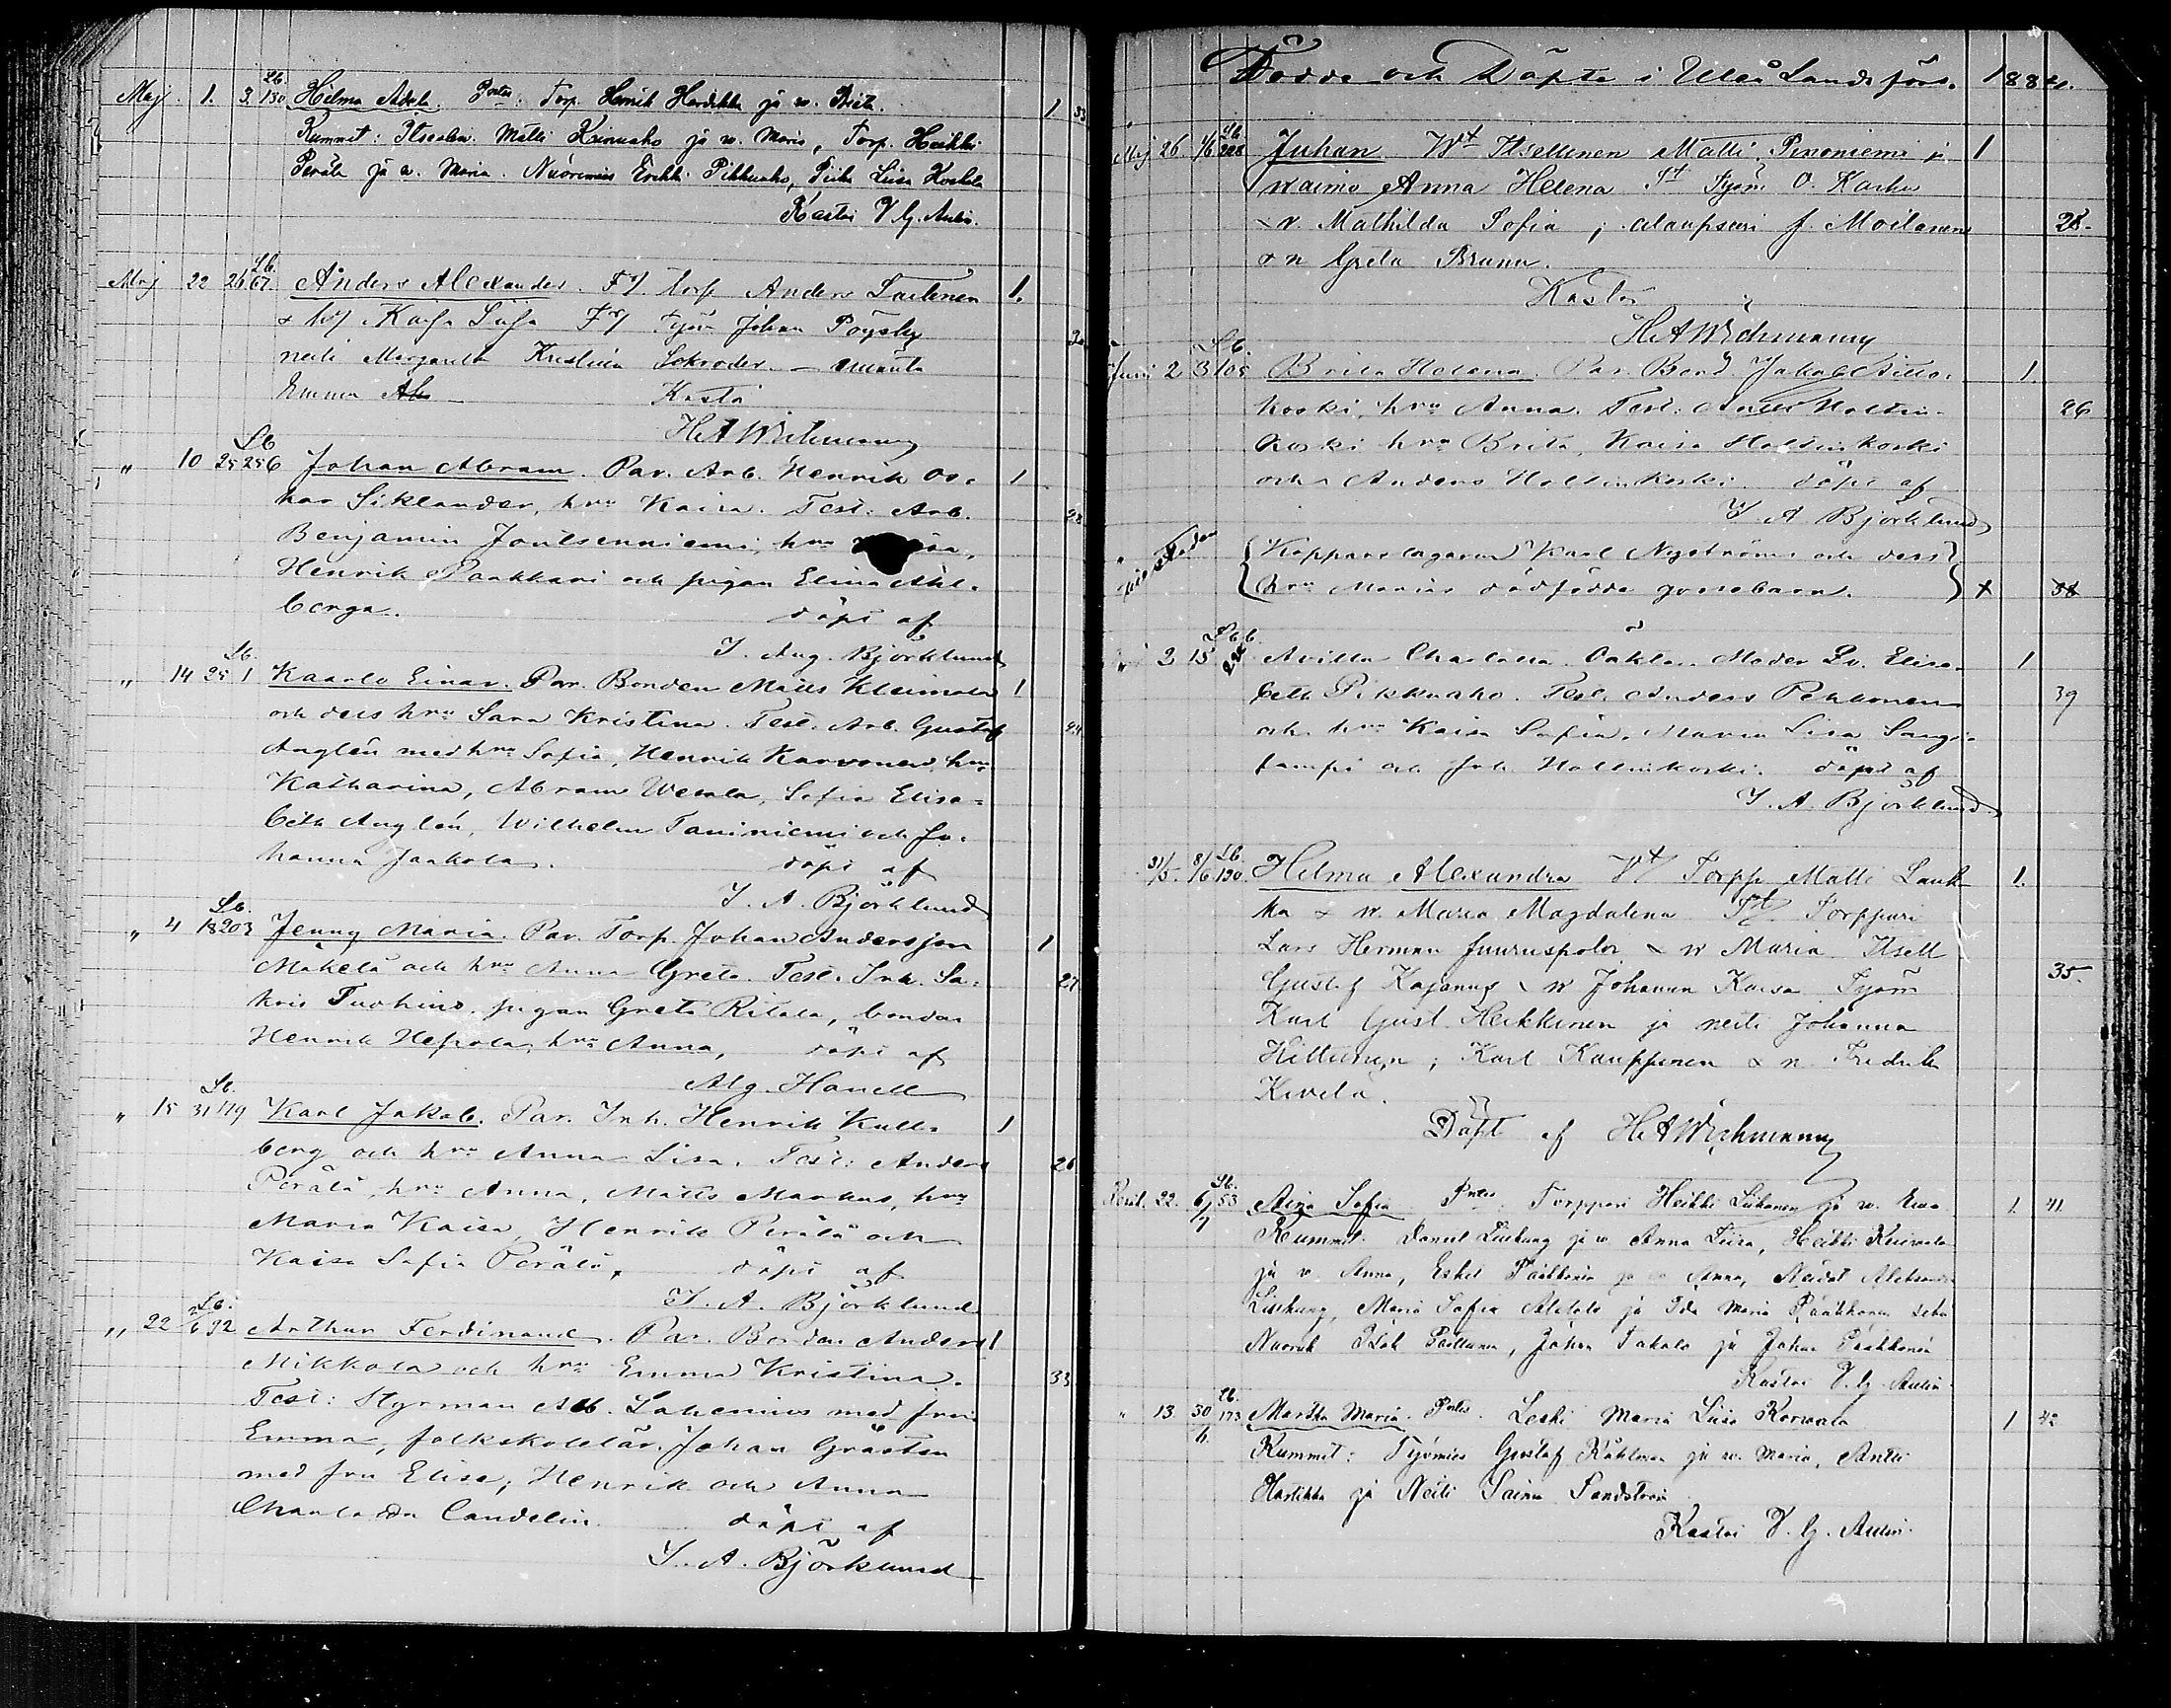 Maj. 1. 3. Lb. 130 Hilma Adela. Prtes: Torp. Henrik Hardikka ja w. Brita. 1 33
Kummit: Itsellm. Matti Keinuaho ja w. Maria, Torp. Heikki
Perälä ja w. Maria. Nuorimies Erkki Pikkuaho, Piika Liisa Koskela
Kastoi V. G. Aulin.
Maj 22 26 Lb. 67. Anders Alexander. Torp Anders Lautenen 1.
& Kaisa Liisa Työm Johan Pöysky
neiti Margareta Kristina Schroder.
Emma Kastoi
H A Wichmann
" 10 25 Lb 256 Johan Abram. Par. Arb. Henrik Os- 1
kar Siklander, hru Kaisa. Test: Arb. 28
Benjamin Joutsenniemi, hru
Henrik Paakkari och pigan Elina Ahl-
berga. döpt af
J. Aug. Björklund
" 14 25 Lb. 1 Kaarlo Einar. Par. Bonden Matts Kleimola 1
och dess hru Sara Kristina. Test. Arb. Gustaf 24
Anglén med hru Sofia, Henrik Karvonen, hru
Katharina, Abram Wesala, Sofia Elisa-
beth Anglén, Wilhelm Taminiemi och Jo-
hanna Jaakola. döpt af
J. A. Björklund
" 4 18 Lb. 203 Jenny Maria. Par. Torp. Johan Andersson 1
Mäkelä och hru Anna Greta. Test. Inh. Sa- 27
kris Tuohino, pigan Greta Ritola, bonden
Henrik Hepola, hru Anna, döpt af
Alg. Hanell
" 15 31 Lb. 179 Karl Jakob. Par. Inh. Henrik Kull- 1
berg och hru Anna Lisa. Test: Anders 26
Perälä, hru Anna, Matts Markus, hru
Maria Kaisa, Henrik Perälä och
Kaisa Sofia Perälä, döpt af
J. A. Björklund
" 22 2/6 Lb. 92 Arthur Ferdinand. Par. Bonden Anders 1
Mikkola och hru Emma Kristina. 33
Test: Styrman Alb. Lahenius med fru
Emma, folkskolelär. Johan Grästen
med fru Elise, Henrik och Anna
Charlotta Candelin. döpt af
J. A. Björklund
Födde och Döpte i Uleå Landsförs. 1884.
Maj 26. 1/6 Lb. 228 Juhan Itsellinen Matti Pinoniemi ja 1
waimo Anna Helena Työm O. Karhu
& w. Mathilda Sofia; alaupseeri J. Moilanen 28.
& n Greta Bruun.
Kastoi
H A Wichmann
Juni 2 3 Lb. 105 Brita Helena. Par. Bond. Jakob Aitto- 1.
koski, hru Anna. Test: Anders Holtin- 26
koski hru Brita, Kaisa Holtinkoski
och Anders Holtinkoski. döpt af
J. A. Björklund
Kopparslagaren Karl Nyströms och dess
hru Marias dödfödde gossebarn. x 38
" 2 15 Avilla Charlotta. Oäkta. Moder Lv. Elisa- 1
beth Pikkuaho. Test. Anders Pehkonen 39
och hru Kaisa Sofia, Maria Lisa Sangi-
lampi och Joh. Holtinkoski. döpt af
J. A. Björklund
31/5. 8/6 Lb. 190. Hilma Alexandra Torpp. Matti Lauk- 1.
ka & w. Maria Magdalena Torppari
Lars Herman Juuruspolo & w Maria Itsell
Gustaf Kajanus & w Johanna Kaisa Työm 35.
Karl Gust. Heikkinen ja neiti Johanna
Kittunen; Karl Kauppinen & n. Fredrik
Kivelä.
Döpt af H A Wichmann
22. 6/7 Lb. 53 Aina Sofia Prtes: Torppari Heikki Liikanen ja w. Ewa 1. 41
Kummit: Daniel Liukung ja w Anna Liisa, Heikki Kuiwala
ja w. Anna, Erkki Päätkönen ja w Anna, Neidot Aleksandra
Liukung, Maria Sofia Alatalo ja Ida Maria Päätkönen seka
Nuoruk. Isak Peltunen, Johan Takalo ja Johan Päätkönen
Kastoi V. G. Aulin.
" 13. 30/6. Lb. 173 Martha Maria. Prtes. Leski Maria Liisa Korwala 1 42
Kummit: Työmies Gustaf Kählman ja w. Maria, Antti
Hartikka ja Neiti Saima Sandström
Kastoi V. G. Aulin.